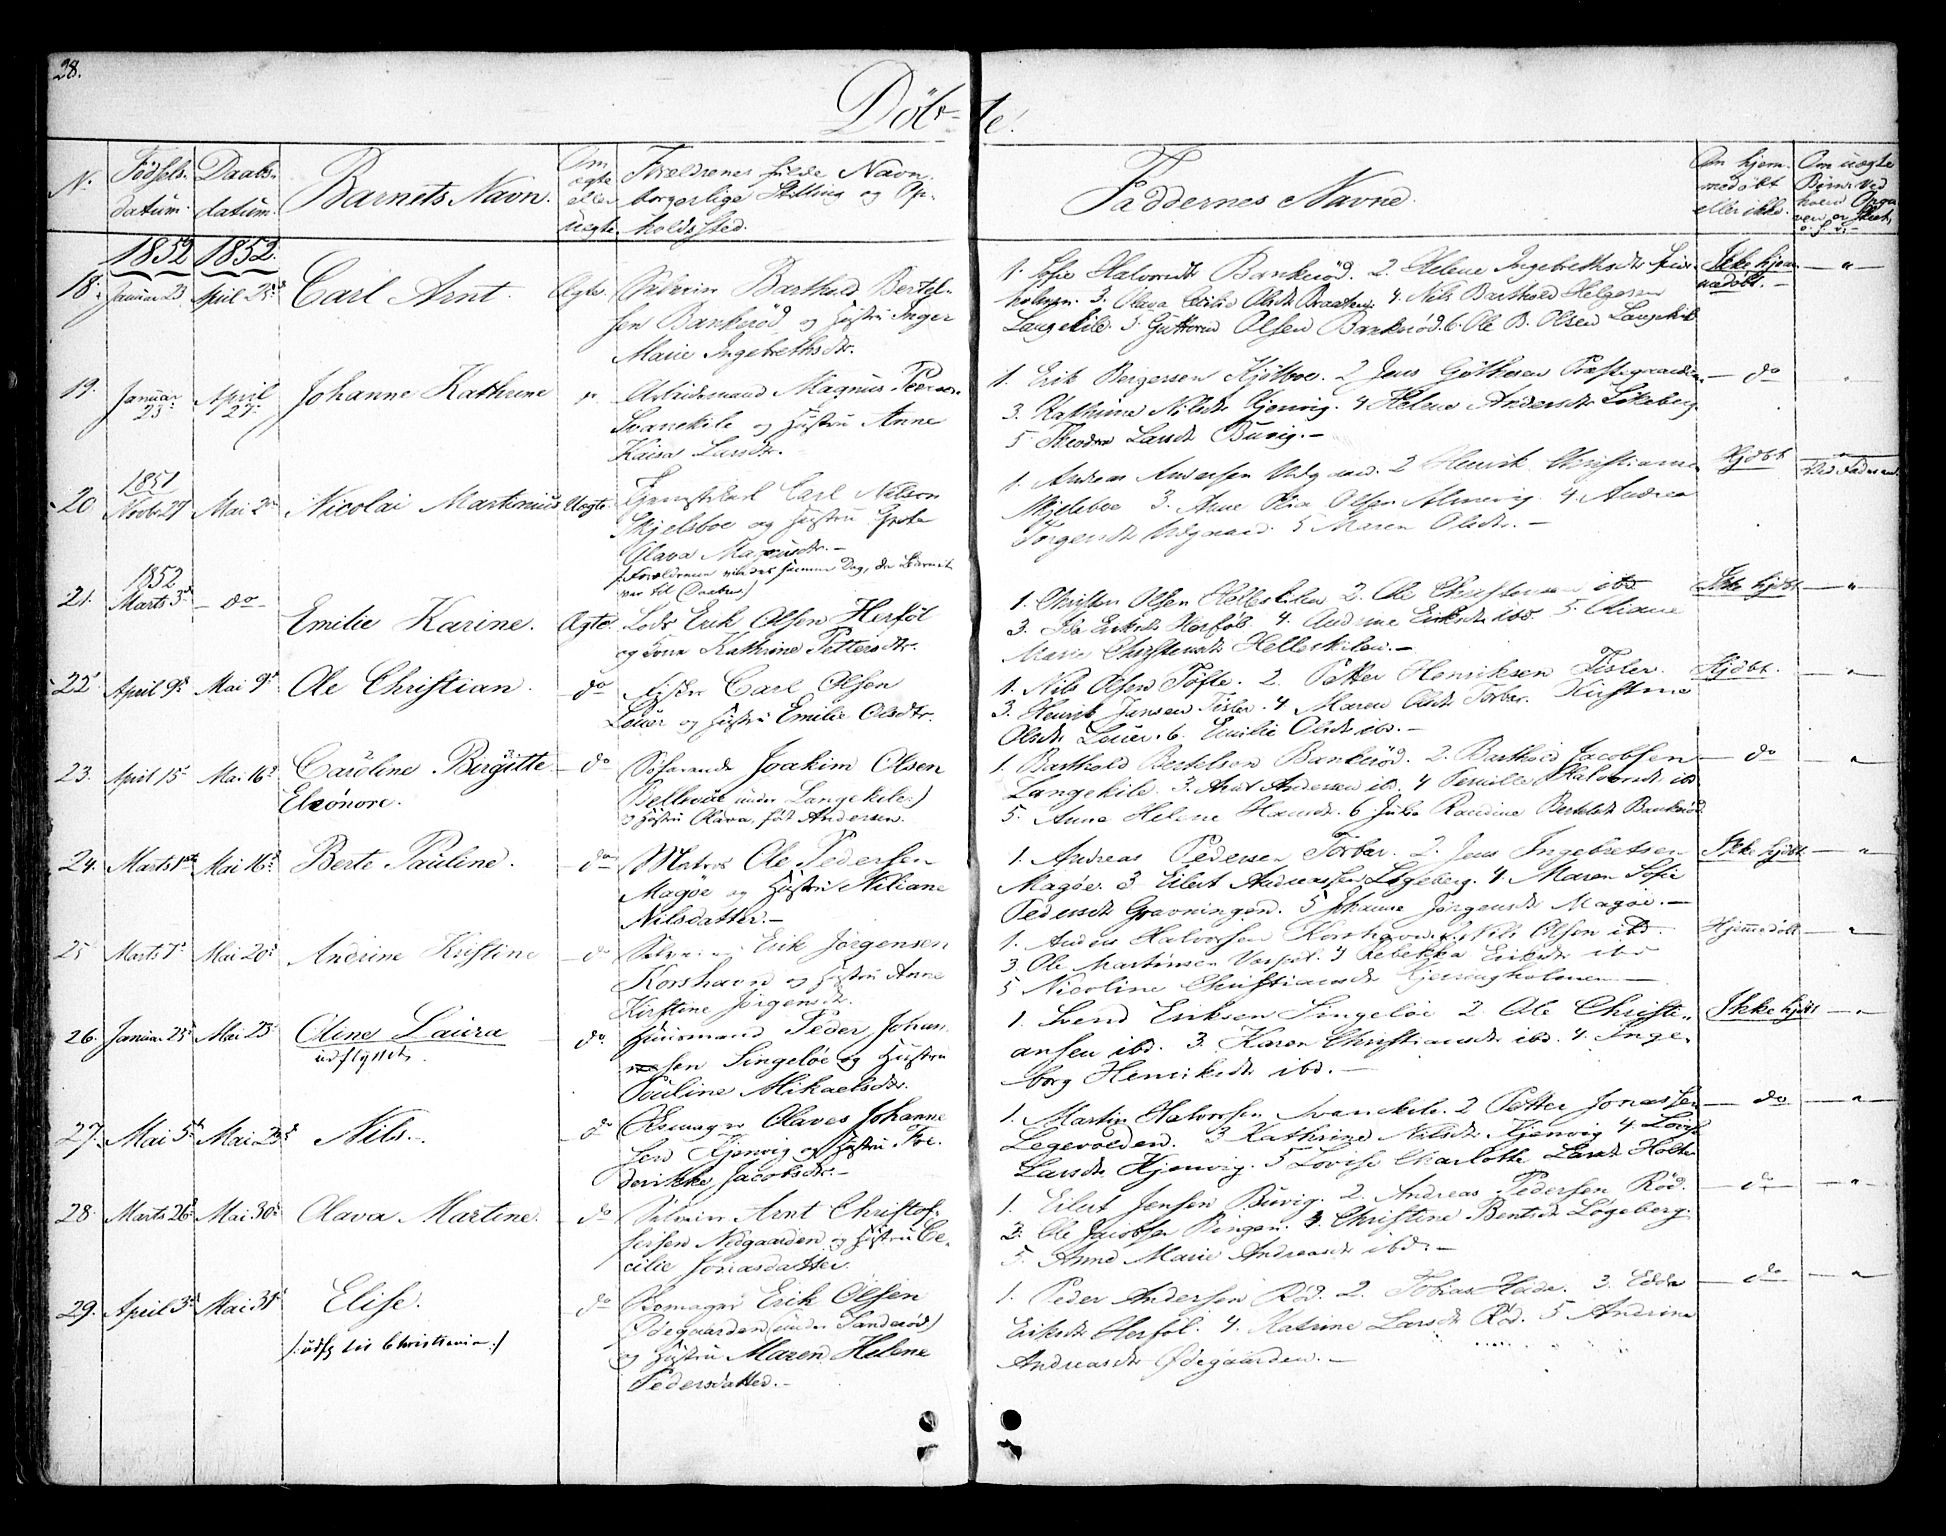 28.
Döbte.
N.
Födsels-
datum.
Daabs-
datum.
Barnets Navn.
Om
ægte
eller
uægte.
Forældrenes fulde Navn,
borgerlige Stilling og Op-
holdssted.
Faddernes Navne.
Om hjem-
medøbt
eller ikke.
1852 1852.
18. Januar 23 April 25d Carl Arnt. Ægte.
Barthold Bertel-
sen Bankerød og Hustru Inger
Marie Ingebrethsdtr.
1. Sofie Halvorsdt Bankerød. 2. Helene Ingebrethsdt
3. Olava Olsdt 4. Nils Barthold Helgesen
Langekile. 5. Guttorm Olsen Bankerød. 6. Ole B. Olsen Langekil
Ikke hjem-
medøbt.
19. Januar 23. April 27. Johanne Kathrine
Magnus
Svanekile og Hustru Anne
Kaisa Larsdtr.
1. Erik Bergersen Kjølboe. 2 Jens
3. Kathrine Nilsdt Kjenvig. 4 Helene Andersdt Løkeberg
5 Larsdt Buvig.
do
20. 1851 Novbr 27 Mai 2den Nicolai Martinius Uægte.
Carl Nilsen
Skjelsboe og Hustru Grete
Olava Magnusdtr.
1. Andreas Andersen 2 Henrik Christians
Skjelsboe 3. Anne Olsen 4 Andrea
Jørgensdt 5 Maren Olsdtr.
Hjdbt
21. 1852 Marts 3d do Emilie Karine. Ægte.
Lods Erik Olsen Herføl
og Kone Kathrine Pettersdtr.
1. Christen Olsen Hellekilen 2. Ole Christensen ibd
3. Ida Eriksdt Herføl. 4. Andrine Eriksdt ibd. 5. Oliane
Marie Christensdt Hellekilen.
Ikke hjdbt
22. April 9d. Mai 9d. Ole Christian. do
Carl Olsen
Lauer og Hustru Emilie Olsdtr.
1. Nils Olsen Tofte. 2. Petter Henriksen Tisler.
3. Henrik Jensen Tisler. 4 Maren Olsdt Torber. Kirstine
Olsdt Lauer. 6. Emilie Olsdt ibd.
Hjdbt.
23. April 15d. Mai 16d Caroline Birgitte
Eleonore. do
Søfarende Joakim Olsen
Bellevue under Langekile
og Hustru Olava, født Andersen.
1. Barthold Bertelsen Bankerød. 2. Barthold Jacobsen
Langekile. 3. Arnt Andersen ibd. 4 Pernille Halvorsdt ibd
5. Anne Helene Hansdt. 6. Julie Randine Bertelsdt Bankerød
do
24. Marts 1st Mai 16d. Berte Pauline. do
Matros Ole Pedersen
Magøe og Hustru Niliane
Nilsdatter.
1. Andreas Pedersen Torber. 2. Jens Ingebretsen
Magøe. 3 Eilert Andreassen Løgeberg. 4. Maren Sofie
Pedersdt Gravningen. 5 Jørgensdt Magøe.
Ikke hjdbt
25 Marts 7d. Mai 20d. Andrine Kristine do
Erik Jørgensen
Korshavn og Hustru Anne
Kirstine Jørgensdt.
1. Anders Halvorsen Korshavn. 2. Nils Olsen ibd.
3. Ole Martinsen 4 Rebekka Eriksdt ibd
5 Nicoline Christiansdt
Hjemmedøbt
26. Januar 25d Mai 23 Oline Laura
udflyttet. do
Huusmand Peder Johan-
nesen Singeløe og Hustru
Pauline Mikaelsdtr.
1. Svend Eriksen Singeløe 2 Ole Christi-
ansen ibd. 3. Karen Christiansdt ibd. 4. Inge-
borg Henriksdt ibd.
Ikke hjdbt
27. Mai 5d. Mai 23d Nils. do
Olaves Johanne-
sen Kjenvig og Hustru Fre-
derikke Jacobsdtr.
1. Martin Halvorsen Svanekile. 2 Petter Jonassen
Legevolden. 3 Kathrine Nilsdt Kjenvig 4 Lovise
Larsdt Kjenvig. 5 Lovise Charlotte Larsdt
do
28. Marts 26d Mai 30d Olava Martine. do
Arnt Christof-
fersen Nedgaarden og Hustru Ce-
cilie Jonasdatter.
1. Eilert Jensen Buvig. 2. Andreas Pedersen Rød.
3. Ole Jacobsen 4 Christine Bentsdt Løgeberg.
5. Anne Marie Andreasdt ibd.
do
29. April 3d. Mai 31t Elise.
/: udfl til Christiania :/ do
Erik Olsen
Ødegaarden (under Sanderød)
og Hustru Maren Helene
Pedersdatter.
1. Peder Andersen Rød. 2. Tobias 3. Edda
Eriksdt Herføl. 4. Katrine Larsdt Rød. 5 Andrine
Andreasdt Ødegaarden.
do